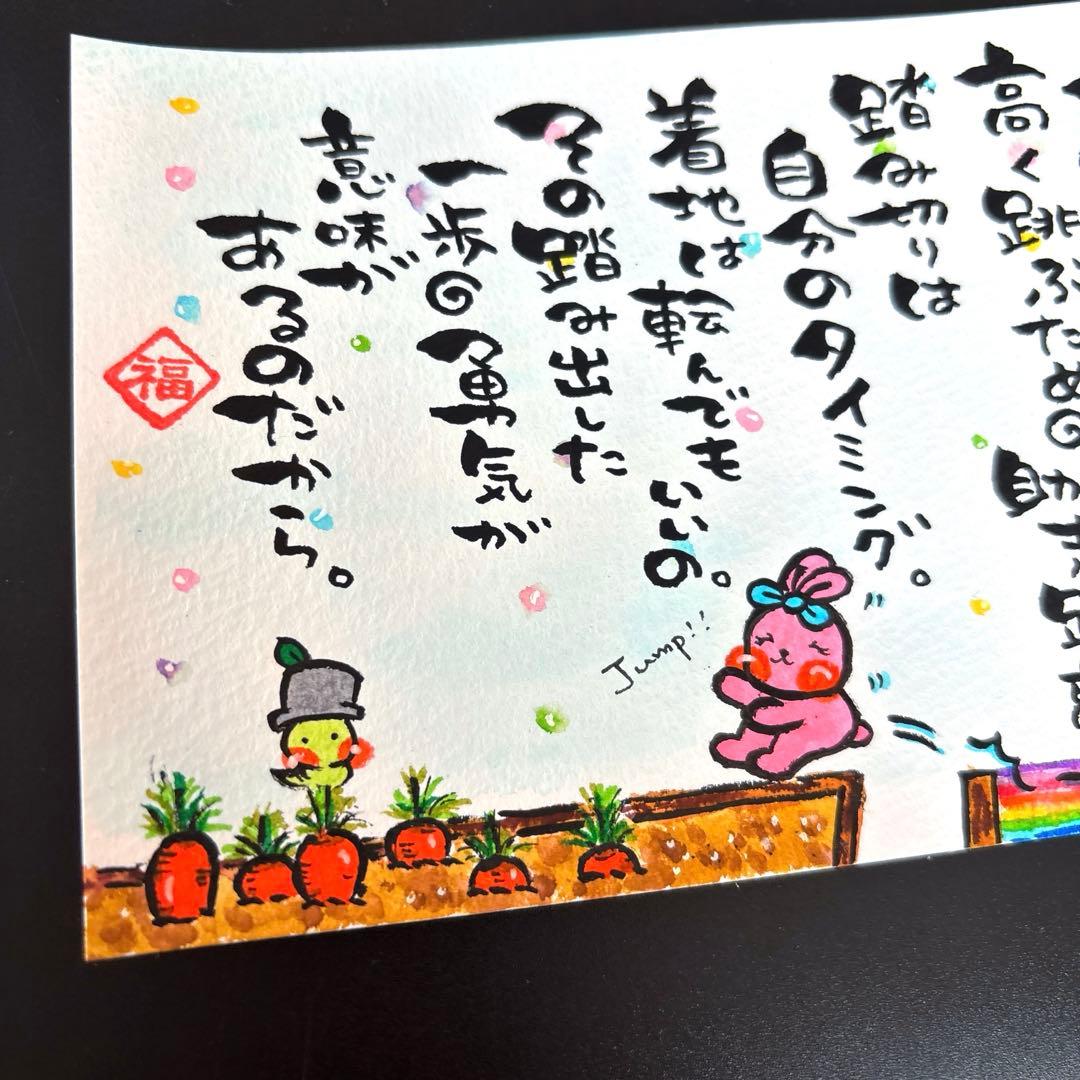 高く跳ぶための
助走
踏み切りは
自分のタイミング。
着地は転んでも
いいの。
その踏み出した
一歩の勇気が
意味が
あるのだから。
Jump!!
福